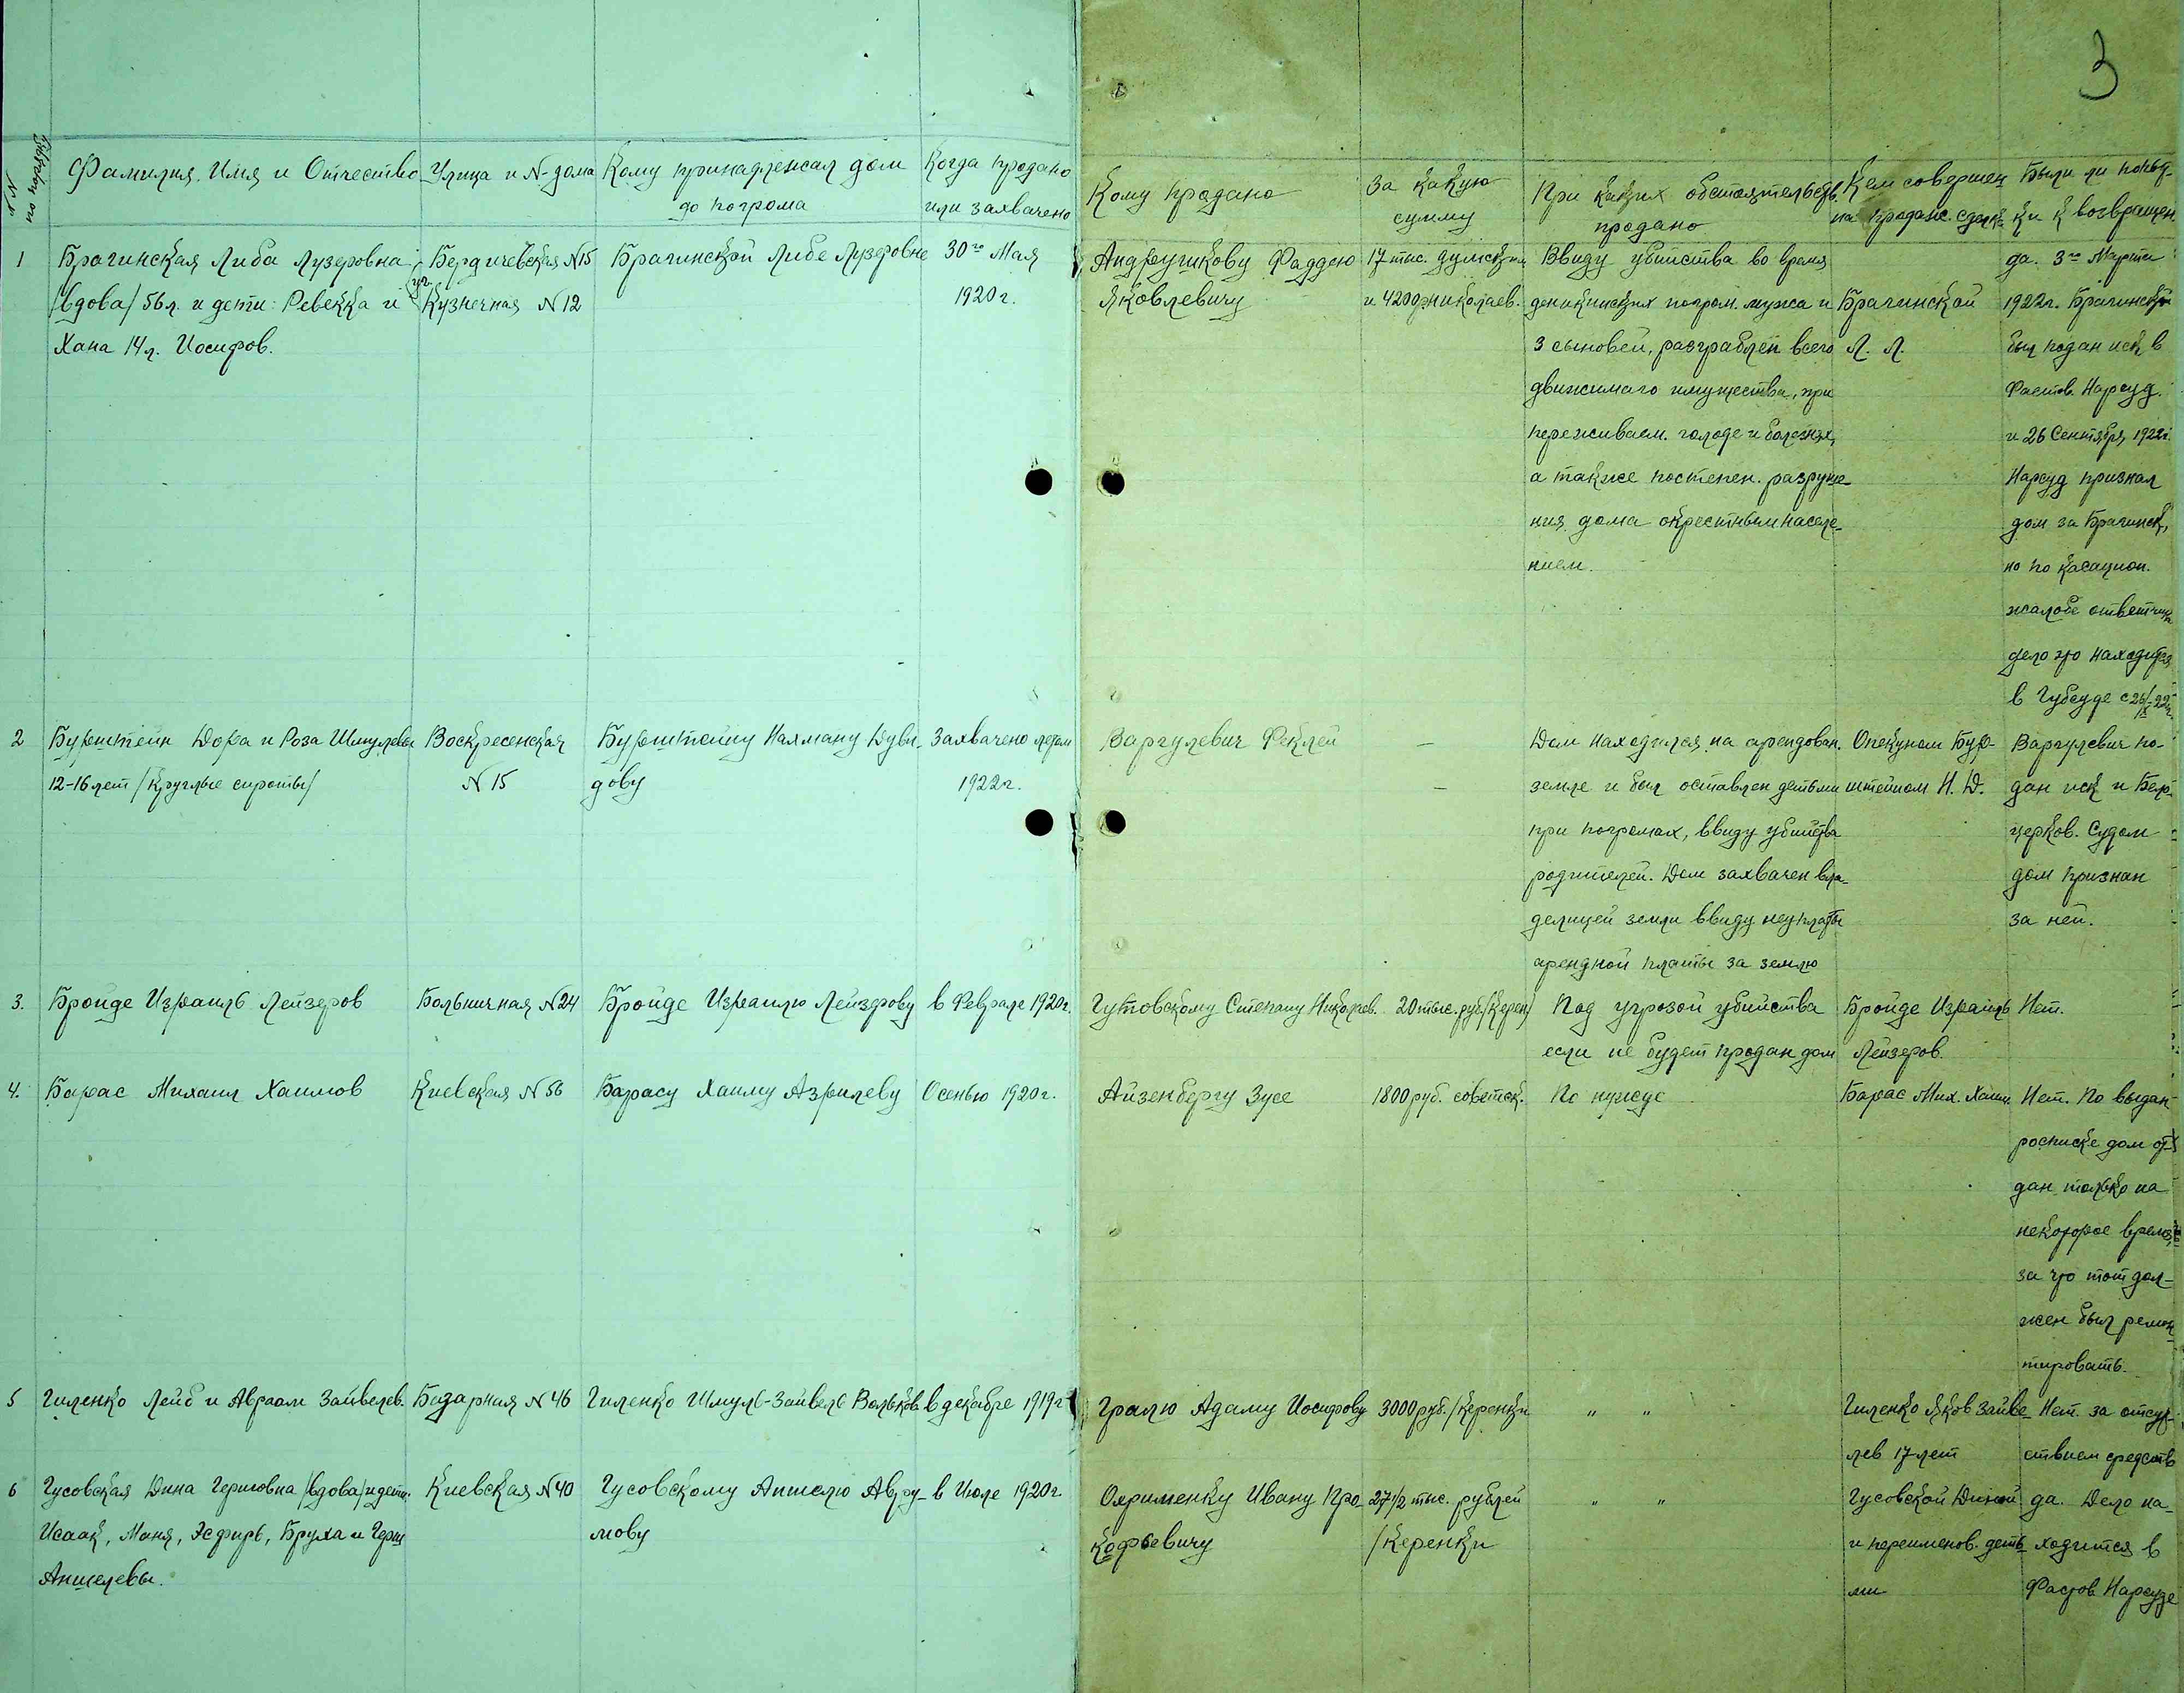 3
NN по порядку
Фамилия, Имя и Отчество
Улица и N дома
Кому принадлежал дом
до погрома
Когда продано
или захвачено
Кому продано
За какую
сумму
При каких обстоятельств.
продано
Кем совершен
на продаже сделк.
Были ли попыт-
ки к возвращен.
1
Брагинская Либа Лузеровна
/вдова/ 56 л. и дети: Ревекка и
Хана 14 л. Иосифов.
Бердичевская N 15
уг.
Кузнечная N 12
Брагинской Либе Лузеровне
30го Мая
1920 г.
Андрушкову Фаддею
Яковлевичу
17 тыс. думскими
и 4200 р николаев.
Ввиду убийства во время
деникинских погром. мужа и
3 сыновей, разграблен всего
движимаго имущества, при
переживаем. голоде и болезнях,
а также постепен. разруше-
ния дома окрестным населе-
нием.
Брагинской
Л. Л.
да. 3го Марта
1922 г. Брагинской
был подан иск в
Фастов. Нарсуд.
и 26 Сентября 1922 г.
Нарсуд признал
дом за Брагинск,
но по касацион.
жалобе ответчика
дело это находится
в Губсуде с 26/IX 22 г.
2
Бурштейн Дора и Роза Шмулевы
12-16 лет /круглые сироты/
Воскресенская
N 15
Бурштейну Нахману Дуви-
дову
Захвачено летом
1922 г.
Варгулевич Феклей
–
–
Дом находился на арендован.
земле и был оставлен детьми
при погромах, ввиду убийства
родителей. Дом захвачен вла-
делицей земли ввиду неуплаты
арендной платы за землю
Опекуном Бур-
штейном Н. Д.
Варгулевич по-
дан иск и Бел.
церков. Судом
дом признан
за ней.
3.
Бройде Израиль Лейзеров
Больничная N 24
Бройде Израилю Лейзерову
в Феврале 1920 г.
Гутовскому Степану Николаев.
20 тыс. руб /керен/
Под угрозой убийства
если не будет продан дом
Бройде Израиль
Лейзеров.
Нет.
4.
Барас Михаил Хаимов
Киевская N 56
Барасу Хаиму Азрилеву
Осенью 1920 г.
Айзенбергу Зусе
1800 руб. советск.
По нужде
Барас Мих. Хаим.
Нет. По выдан
росписке дом от-
дан только на
некоторое время,
за что тот дол-
жен был ремон-
тировать.
5
Гиленко Лейб и Авраам Зайвелев.
Базарная N 46
Гиленко Шмуль-Зайвель Вольков.
в декабре 1919 г.
Гралю Адаму Иосифову
3000 руб. /керенки
" "
Гиленко Яков Зайве-
лев 17 лет
Нет. за отсут-
ствием средств
6
Гусовская Дина Гершовна /вдова/ и дети:
Исаак, Маня, Эсфирь, Бруха и Герш
Аншелевы.
Киевская N 40
Гусовскому Аншелю Авру-
мову
в Июле 1920 г.
Охрименку Ивану Про-
кофьевичу
27 1/2 тыс. рублей
/керенки
" "
Гусовской Диной
и переименов. деть-
ми
да. Дело на-
ходится в
Фастов. Нарсуде